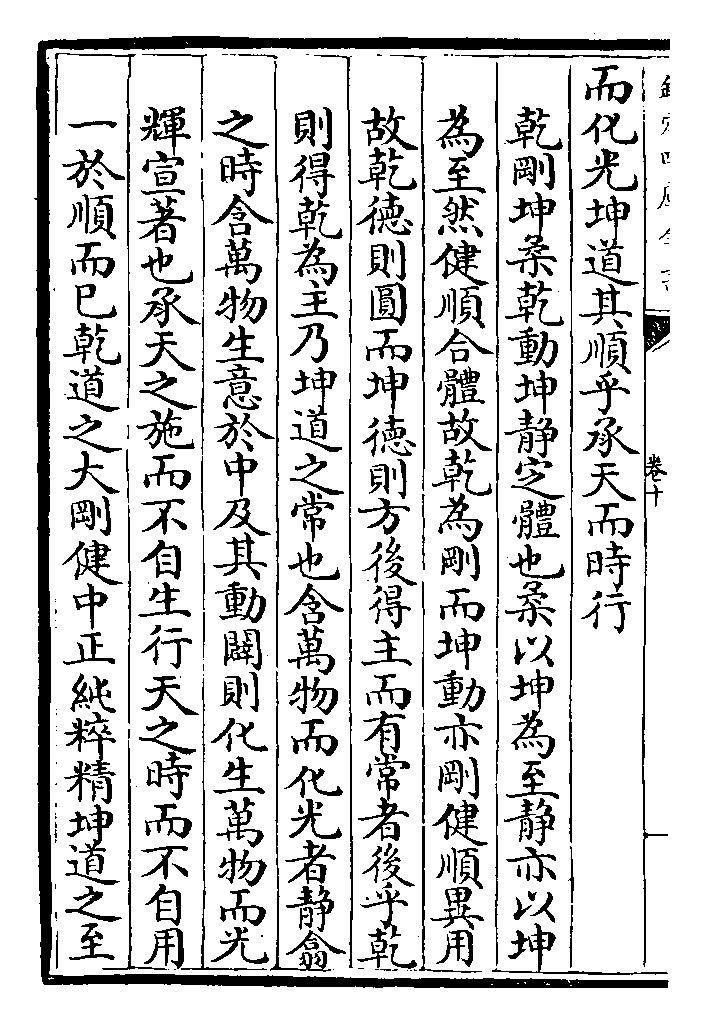 卷十
而化光坤道其順乎承天而時行
乾剛坤柔乾動坤静定體也柔以坤為至静亦以坤
為至然健順合體故乾為剛而坤動亦剛健順異用
故乾德則圓而坤德則方後得主而有常者後乎乾
則得乾為主乃坤道之常也含萬物而化光者静翕
之時含萬物生意於中及其動闢則化生萬物而光
輝宣著也承天之施而不自生行天之時而不自用
一於順而已乾道之大剛健中正純粹精坤道之至